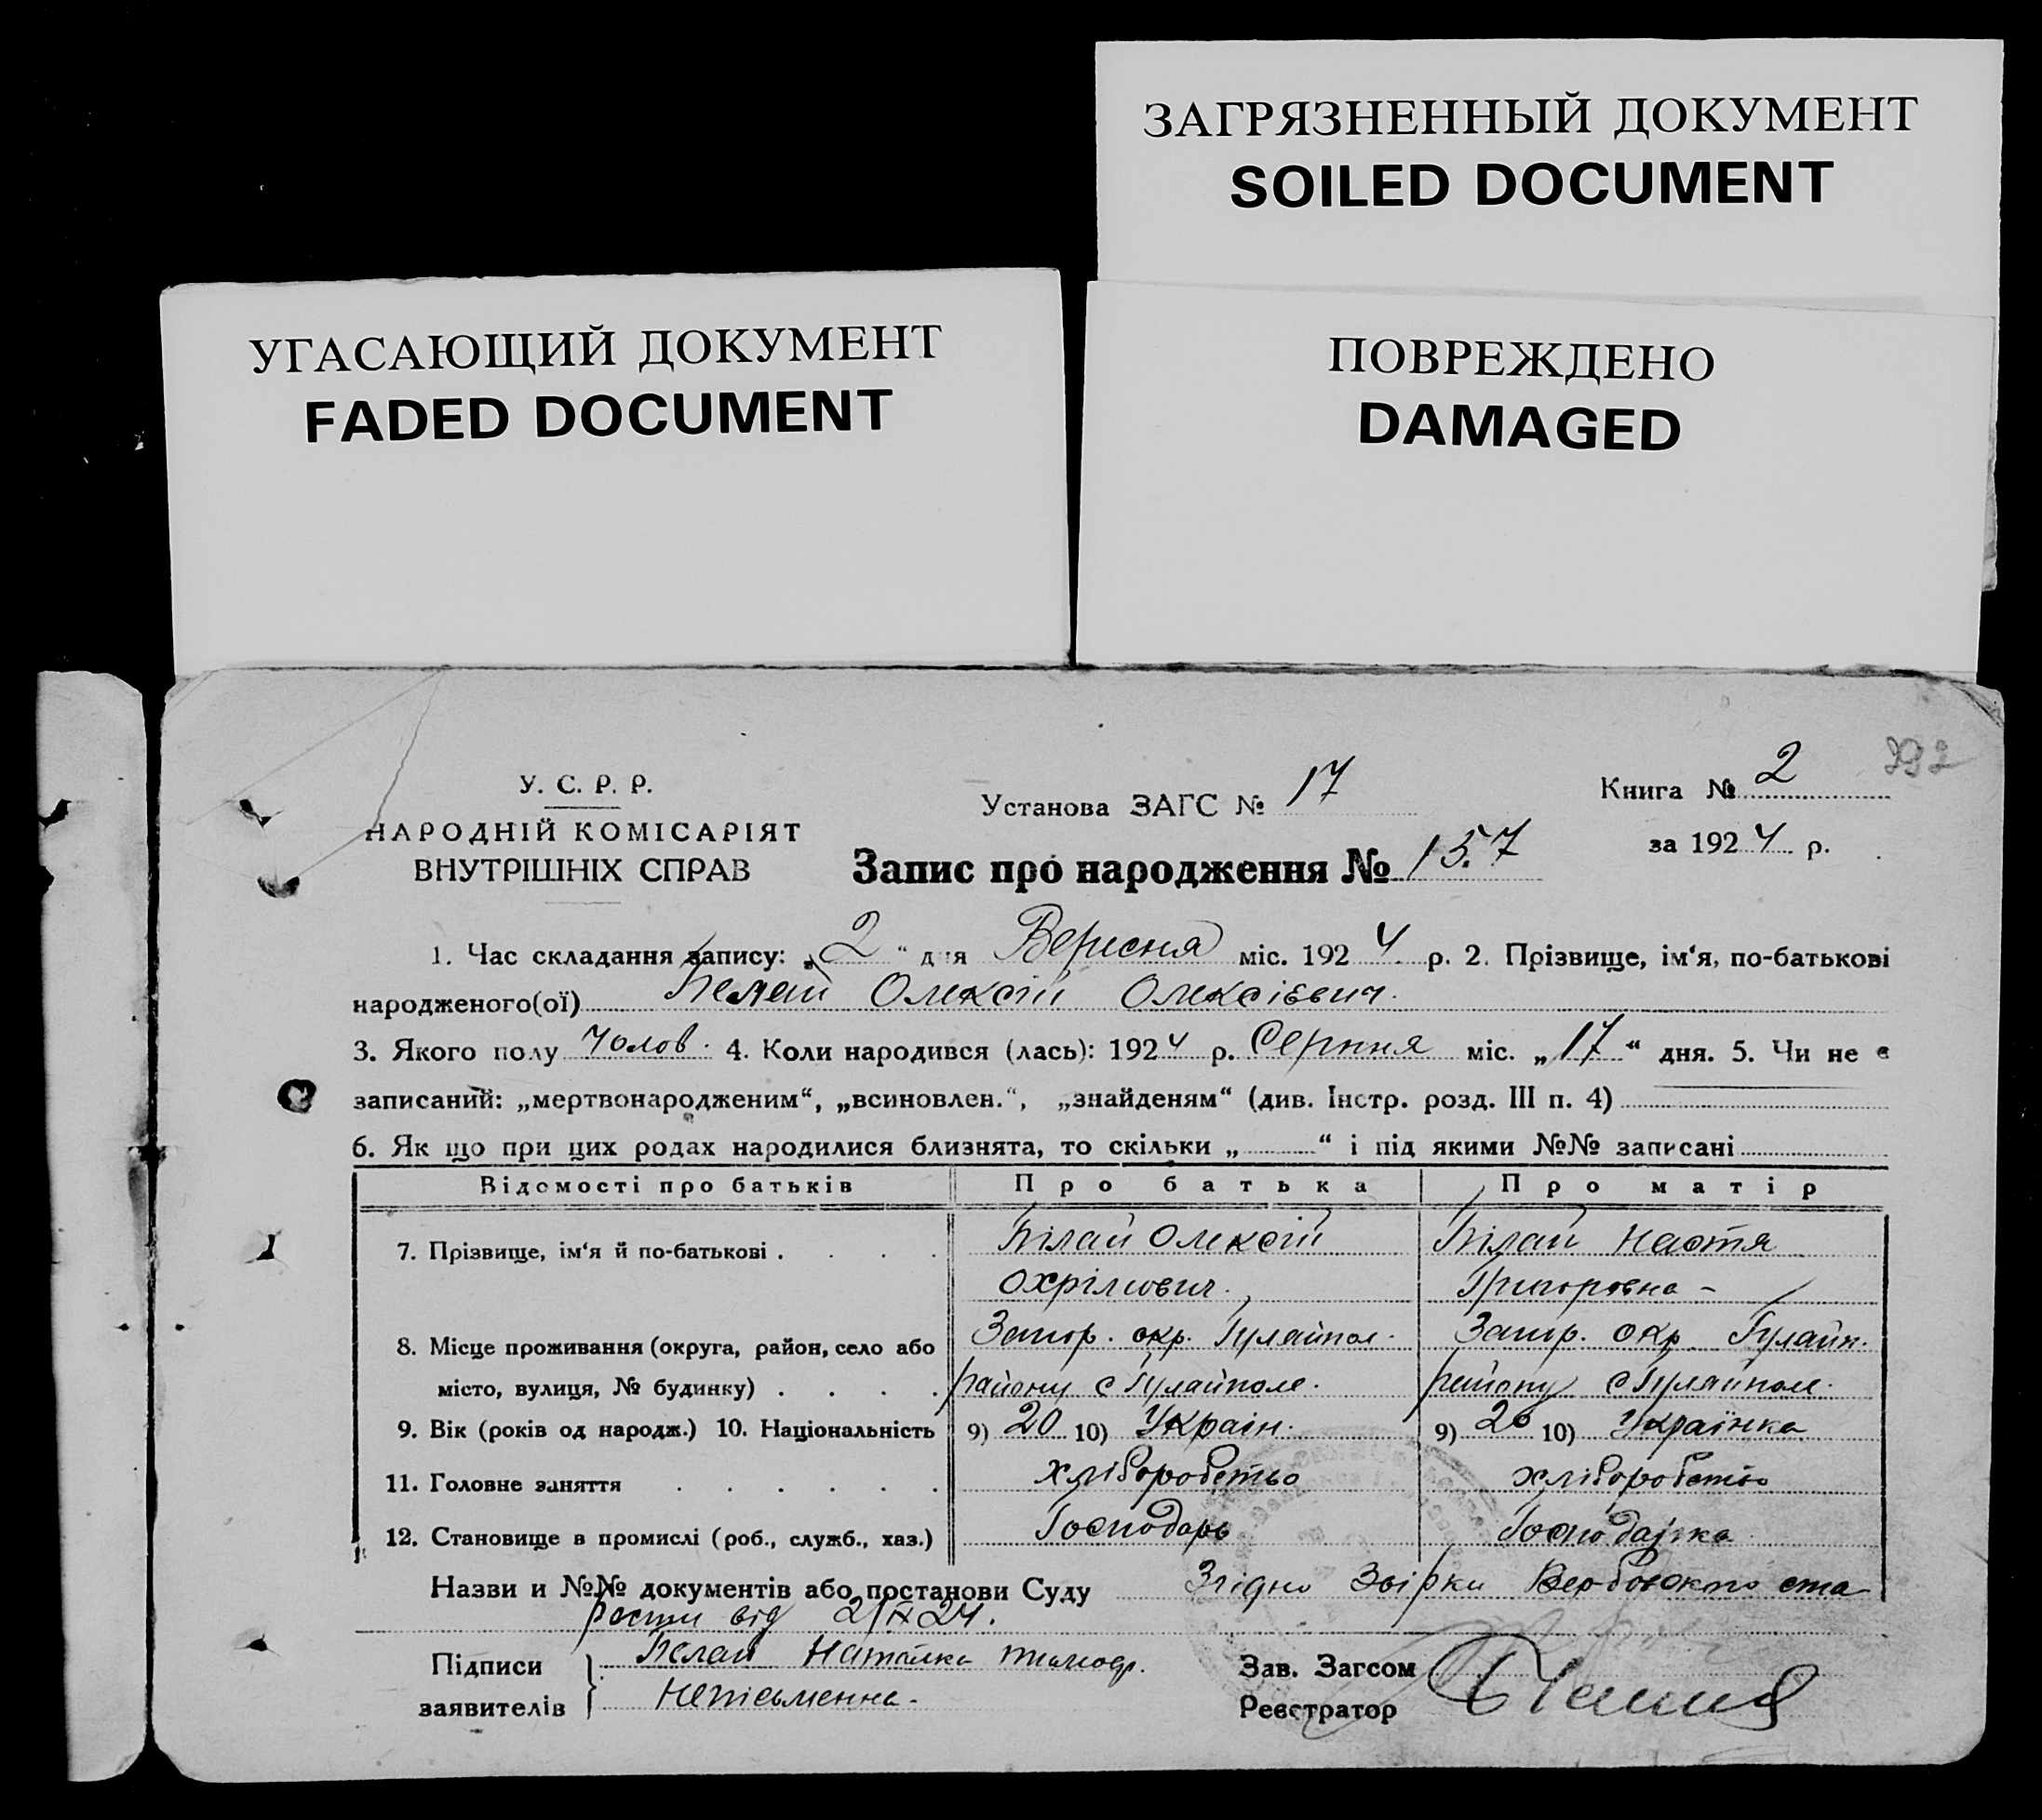 ЗАГРЯЗНЕННЫЙ ДОКУМЕНТ
SOILED DOCUMENT
УГАСАЮЩИЙ ДОКУМЕНТ
FADED DOCUMENT
ПОВРЕЖДЕНО
DAMAGED
392
У. С. Р. Р.
НАРОДНІЙ КОМІСАРІЯТ
ВНУТРІШНІХ СПРАВ
Установа ЗАГС № 17
Книга № 2
за 1924 р.
Запис про народження № 157
1. Час складання запису: „2“ дня Вересня міс. 1924 р. 2. Прізвище, ім‘я, по-батькові
народженого(ої) Белай Олексій Олексієвич.
3. Якого полу Чолов. 4. Коли народився (лась): 1924 р. Серпня міс. „17“ дня. 5. Чи не є
записаний: „мертвонародженим“, „всиновлен.“, „знайденям“ (див. Інстр. розд. III п. 4)
6. Як що при цих родах народилися близнята, то скільки „ “ і під якими №№ записані
Відомості про батьків Про батька Про матір
7. Прізвище, ім‘я й по-батькові . . . . Білай Олексій Білай Настя
Охрімович. Григоровна -
8. Місце проживання (округа, район, село або Запор. окр. Гуляйпол. Запор. окр. Гуляйп.
місто, вулиця, № будинку) . . . . району с Гуляйполе. району с Гуляйполе.
9. Вік (років од народж.) 10. Національність 9) 20 10) Україн. 9) 20 10) Українка
11. Головне заняття . . . . . . хліборобство хліборобство
12. Становище в промислі (роб., служб., хаз.) Господарь Господарка
Назви и №№ документів або постанови Суду Згідно Звірки Вербовского ста
рости від 2/ІХ 24.
Підписи Белай Наталка
заявителів неписьменна.
Зав. Загсом
Реєстратор